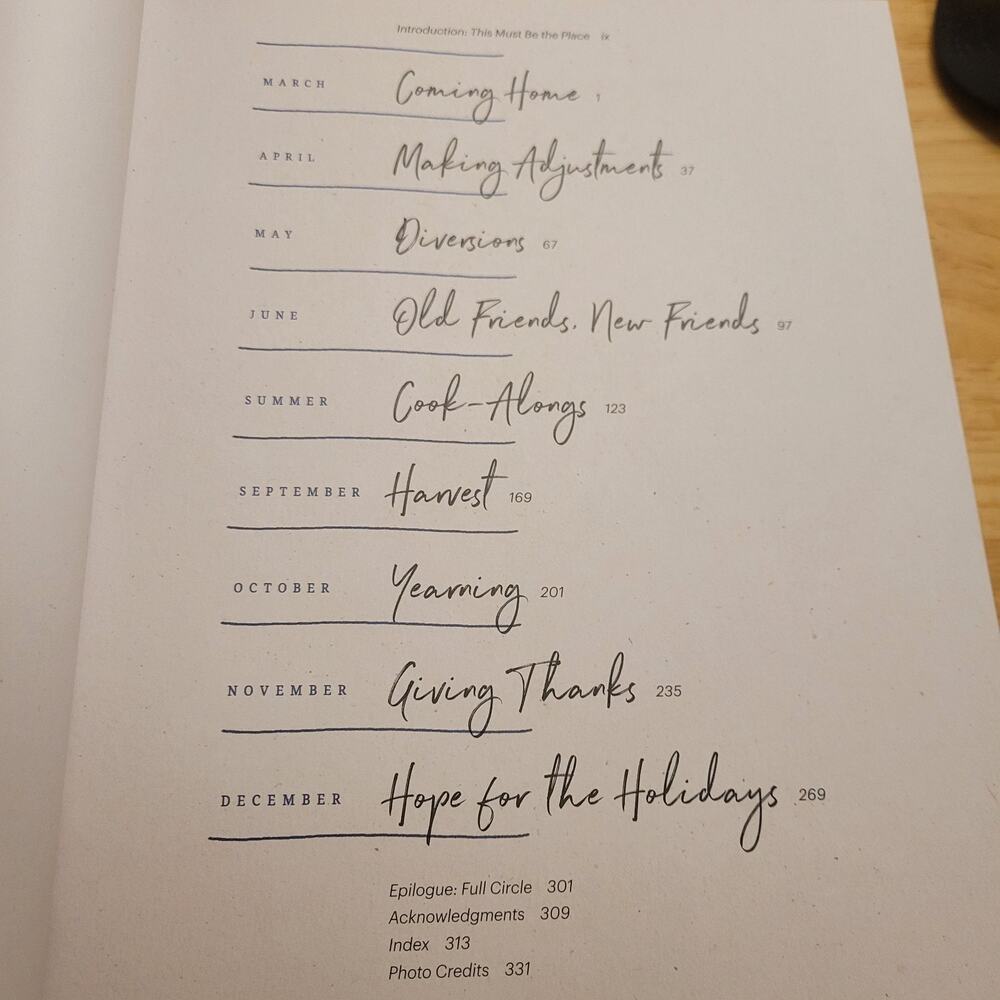 Introduction: This Must Be the Place ix
MARCH Coming Home 1
APRIL Making Adjustments 37
MAY Diversions 67
JUNE Old Friends, New Friends 97
SUMMER Cook-Alongs 123
SEPTEMBER Harvest 169
OCTOBER Yearning 201
NOVEMBER Giving Thanks 235
DECEMBER Hope for the Holidays 269
Epilogue: Full Circle 301
Acknowledgments 309
Index 313
Photo Credits 331